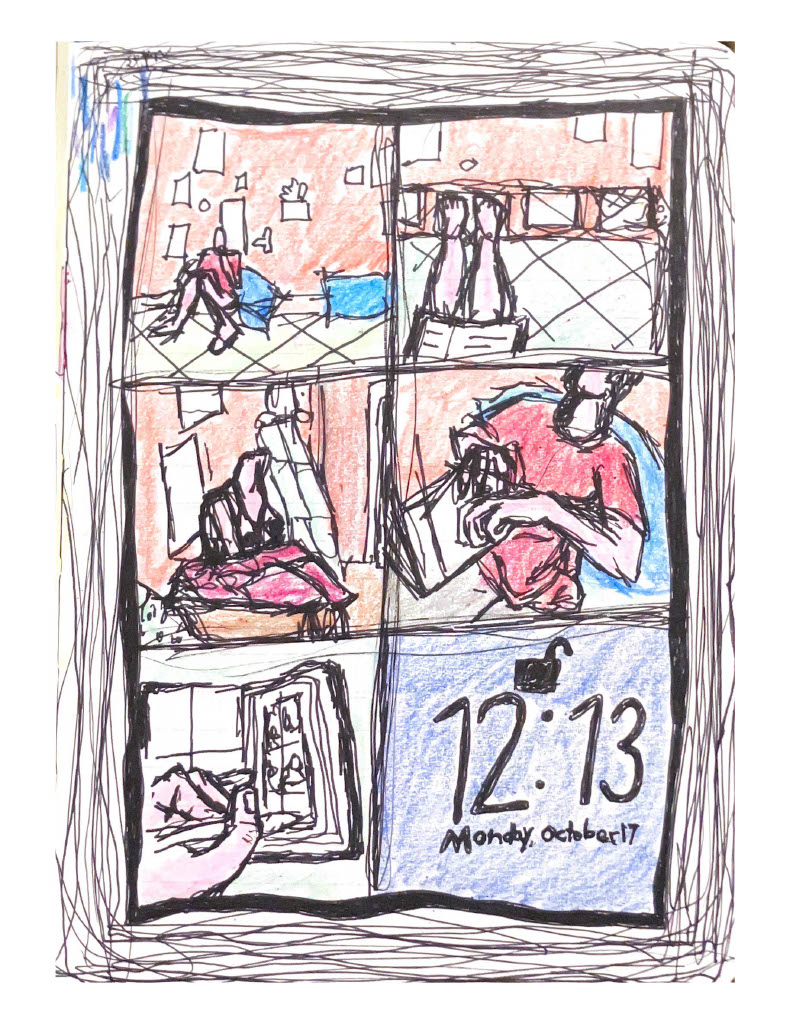 12:13
Monday, October 17